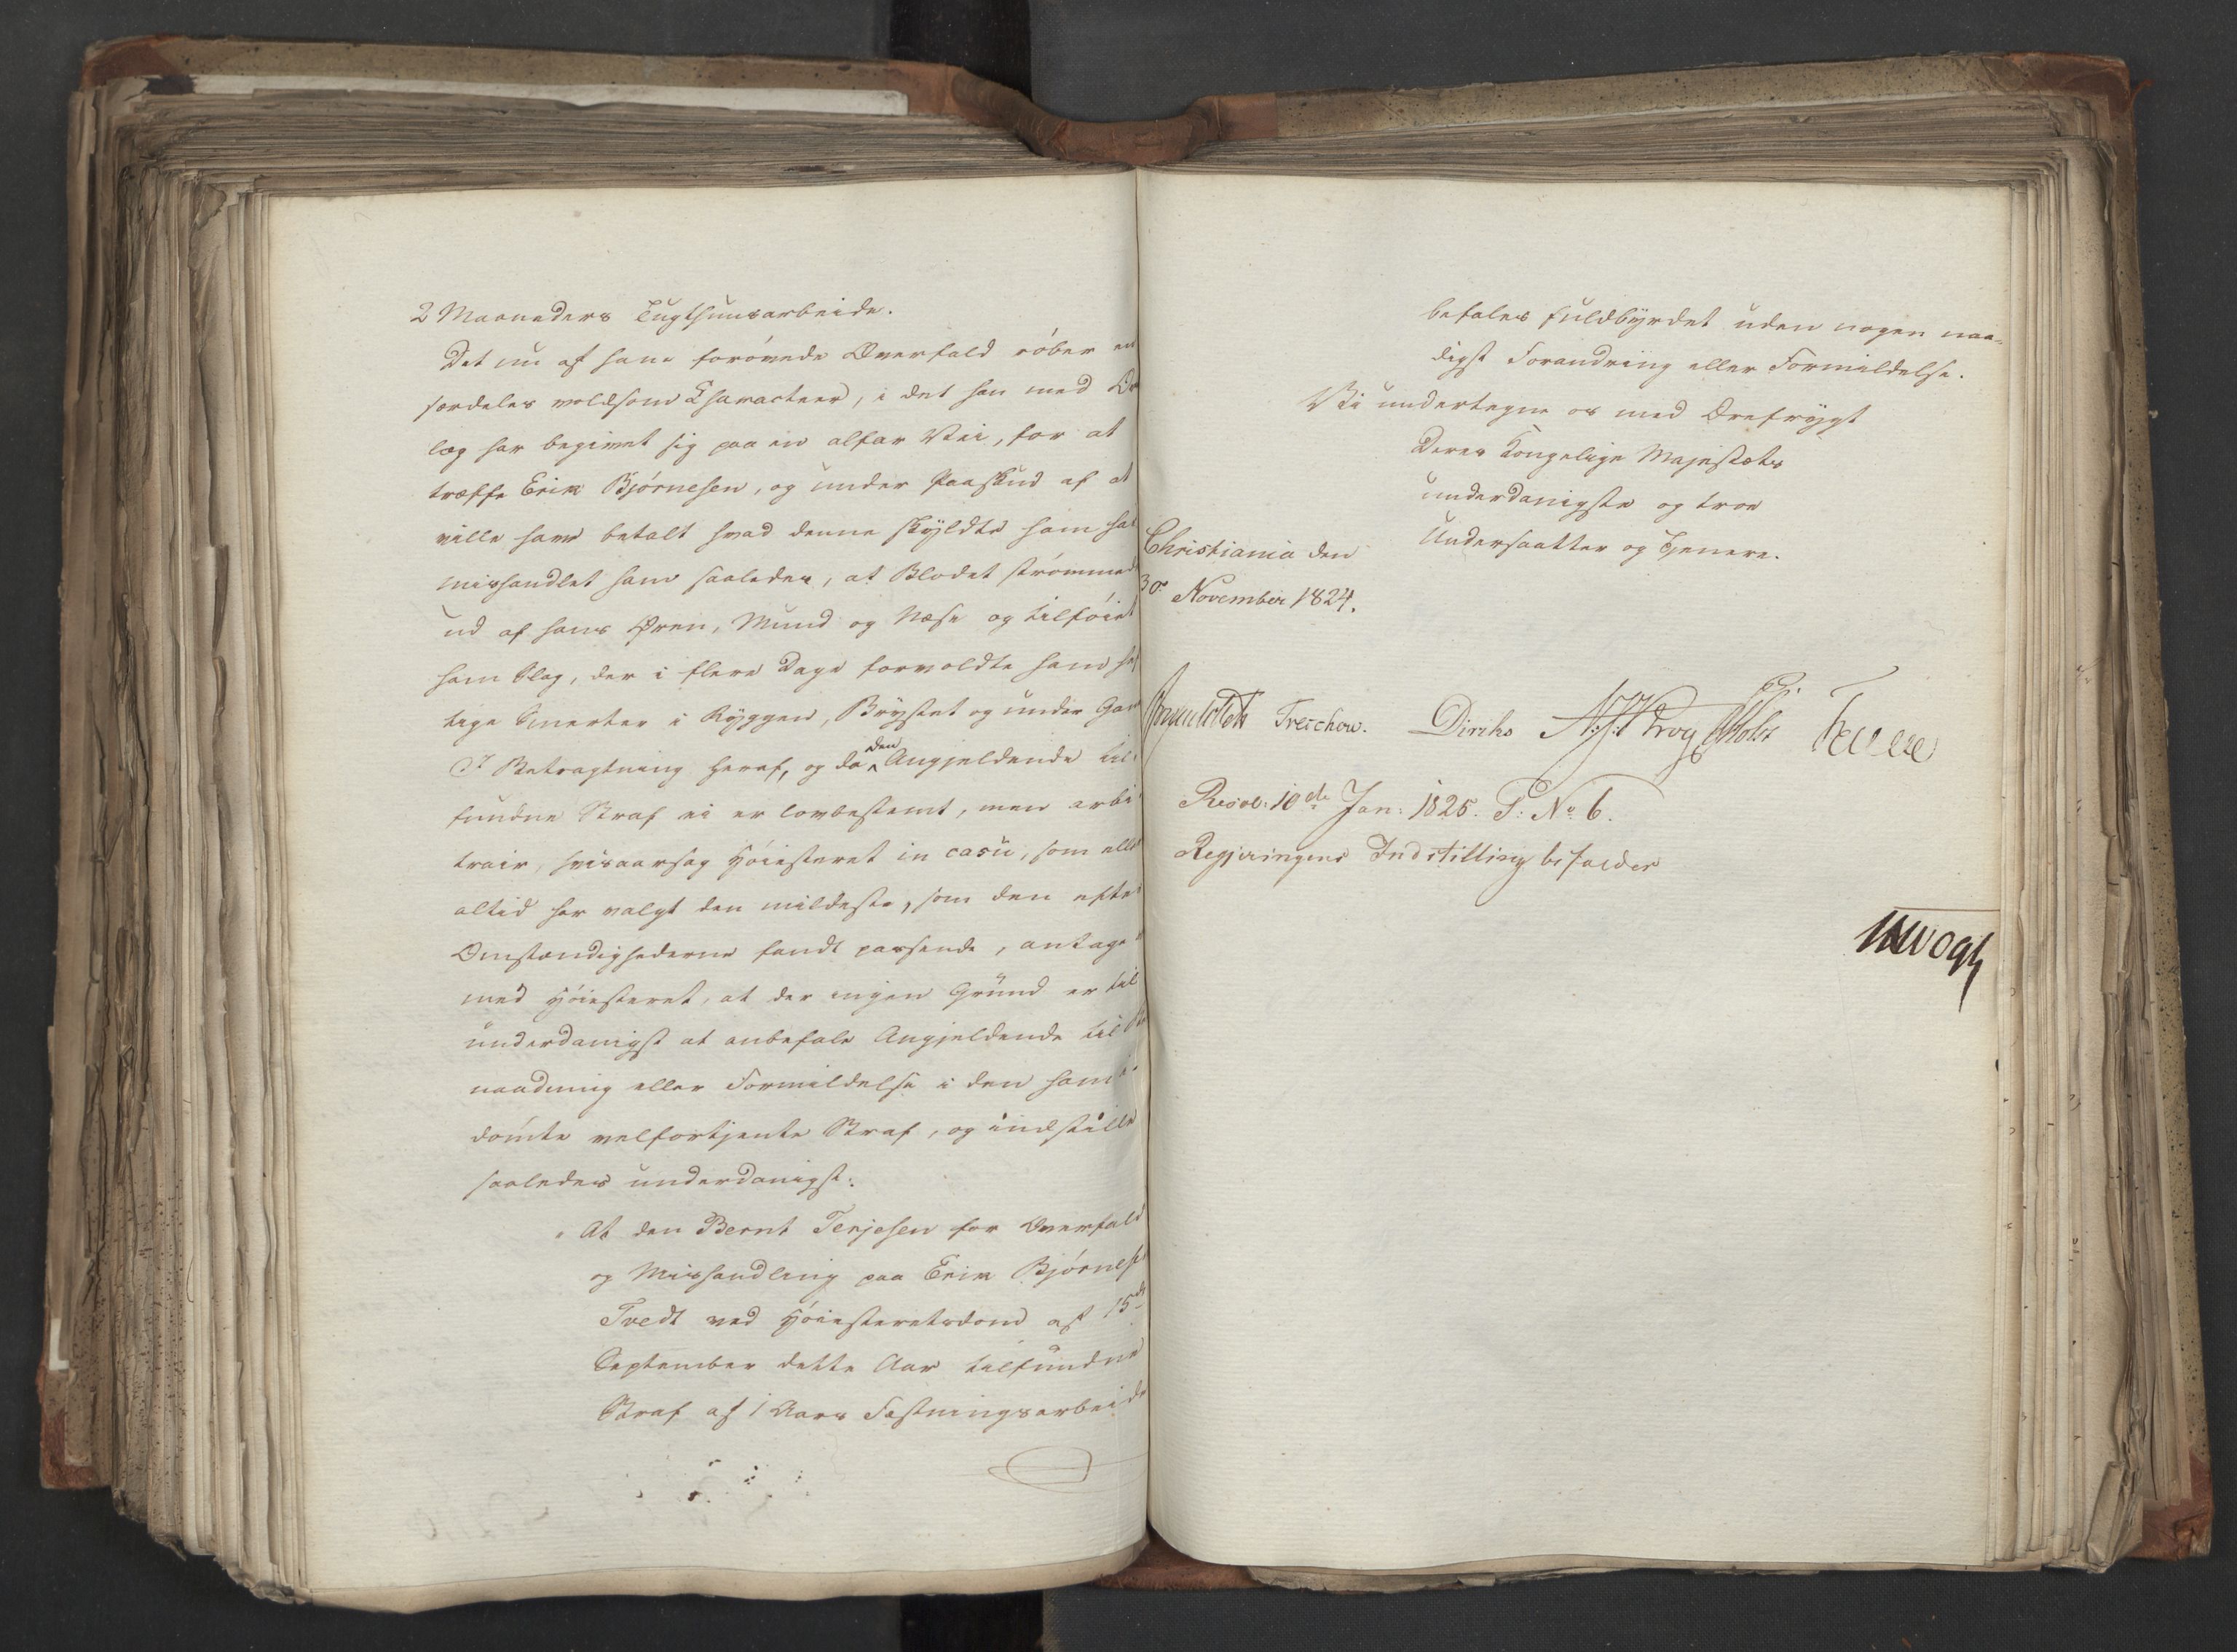 2 Maaneders Tugthuusarbeide.
Det nu af ham forövede Overfald röber en
særdeles voldsom Characteer, i det han med Over
læg har begivet sig paa en alfar Vei, for at
træffe Erik Björnesen, og under Paaskud af at
ville have betalt hvad denne skyldte ham har
mishandlet ham saaledes, at Blodet strömmede
ud af hans Øren, Mund og Næse og tilföiet
ham Slag, der i flere Dage forvoldte ham hef
tige Smerter i Ryggen, Brystet og under Gan
I Betragtning heraf, og da den Angjeldende til-
fundne Straf ei er lovbestemt, men arbi-
trair, hvisaarsag Höiesteret in casu, som ellers
altid har valgt den mildeste, som den efter
Omstændighederne fandt passende, antages
med Höiesteret, at der ingen Grund er til
underdanigst at anbefale Angjeldende til Be
naadning eller Formildelse i den ham i-
dömte velfortjente Straf, og indstille
saaledes underdanigst:
" At den Bernt Terjesen for Overfald
og Mishandling paa Erik Björnesen
Tvedt ved Höiesteretsdom af 15de
September dette Aar tilfundne
Straf af 1 Aars Fæstningsarbeide
befales fuldbyrdet uden nogen naa-
digst Forandring eller Formildelse.
Vi undertegne os med Ærefrygt
Deres Kongelige Majestæts
underdanigste og troe
Undersaatter og Tjenere.
Christiania den
30 November 1824.
Treschow. Diriks Krog Holst
Resol: 10de Jan: 1825. P: No 6.
Regjeringens Indstilling bifaldes
Vogt